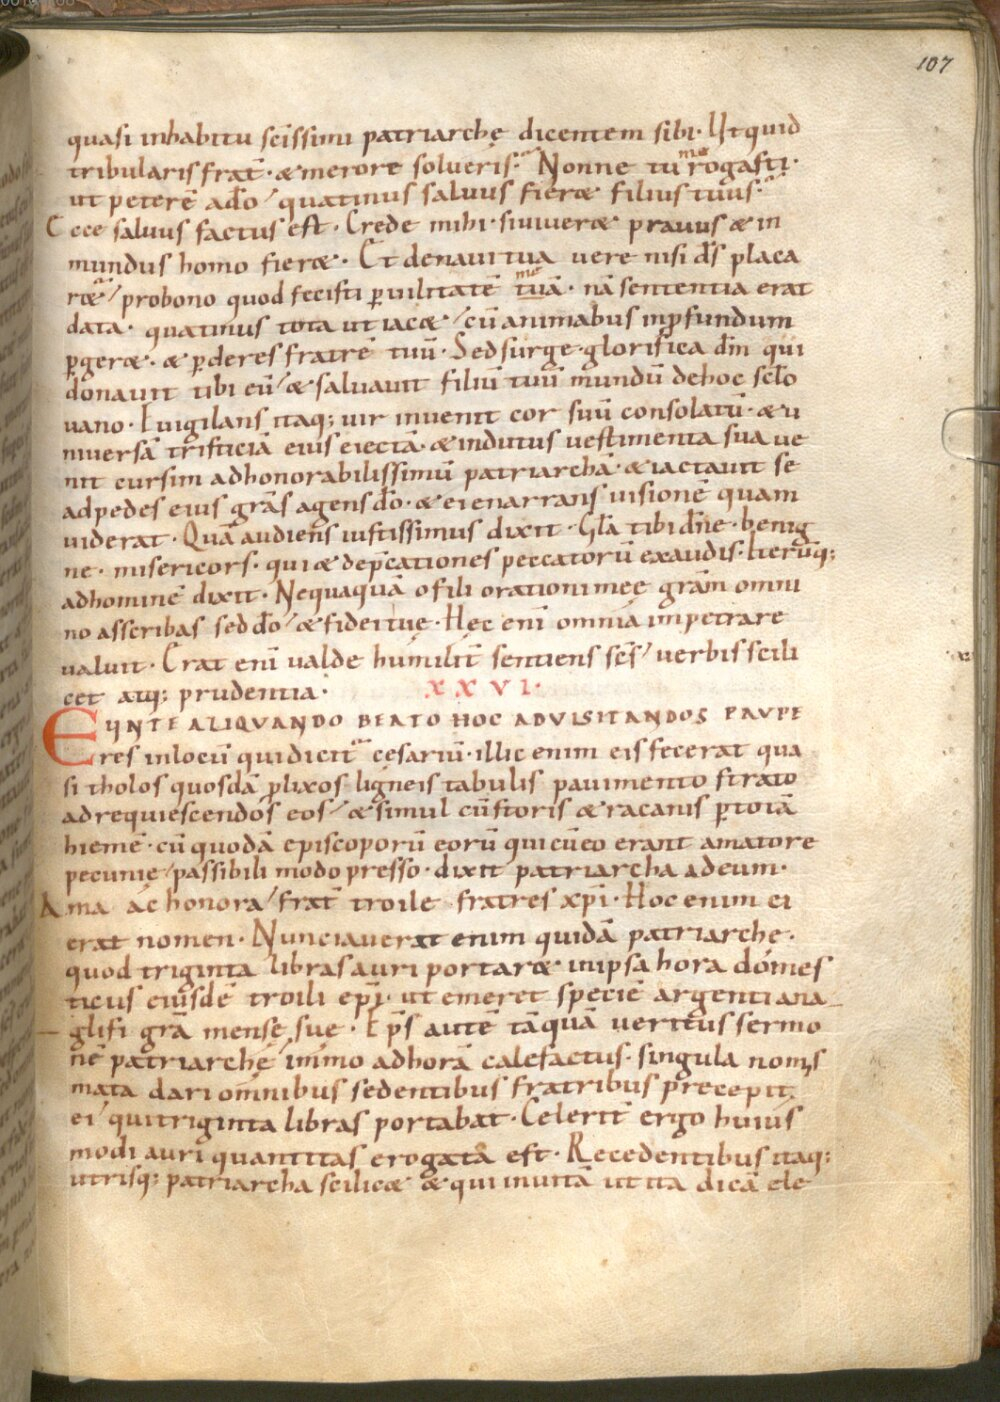 107
quasi inhabitu scīssimi patriarchę dicentem sibi· Ut quid
tribularis frat̄· & merore solueris· Nonne tu me rogasti·
ut peterē ad dō quatinus saluus fier& filius tuus·
Ecce saluus factus est· Crede mihi· si uiuer& prauus & in
mundus homo fier&· Et denaui tua uere nisi d̄s placa
r& / pro bono quod fecisti p̱ uilitatē me tuā· nā sententia erat
data· quatinus tota ut iac& / cū animabus in p̱fundum
p̱ger&· & p̱deres fratrē tuū· Sed surge· glorifica dn̄m qui
donauit tibi eū / & saluauit filiū tuū mundū de hoc sclō
uano· Euigilans itaq; uir inuenit cor suū consolatū· & u
niuersā tristiciā eius eiectā· & indutus uestimenta sua ue
nit cursim ad honorabilissimū patriarchā· & iactauit se
ad pedes eius grās agens dō· & ei enarrans uisionē quam
uiderat· Quā audiens iustissimus dixit· Glā tibi dn̄e· benig
ne· misericors· qui & dep̄cationes peccatorū exaudis· Iterūq;
ad hominē dixit· Nequaquā o fili orationi meę grām omni
no asscribas sed dō / & fidei tuę· Hęc enī omnia impetrare
ualuit· Erat enī ualde humilit̄ sentiens sc̄s / uerbis scili
cet atq; prudentia· XXVI·
EUNTE ALIQUANDO BEATO HOC AD UISITANDOS PAUPE
res in locū qui dicit̄ cesariū· illic enim eis fecerat qua
si tholos quosdā p̱lixos ligneis tabulis pauimento strato
ad requiescendos eos / & simul cū storis & racanis p̱ totā
hiemē· cū quodā episcoporū eorū qui cū eo erant amatore
pecunię / passibili modo presso· dixit patriarcha ad eum·
Ama ac honora / frat̄ troile fratres xp̄i· Hoc enim ei
erat nomen· Nunciauerat enim quidā patriarchę·
quod triginta libras auri portar& in ipsa hora domes
ticus eiusdē troili ep̄i· ut emeret speciē argenti ana
glifi grā mensę suę· Ep̄s autē tāquā ueritus sermo
nē patriarchę / immo ad horā calefactus· singula nomis
mata dari omnibus sedentibus fratribus pręcepit
ei / qui triginta libras portabat· Celerit̄ ergo huius
modi auri quantitas erogata est· Recedentibus itaq;
utrisq; patriarcha scilic& & qui inuitā ut ita dicā ele